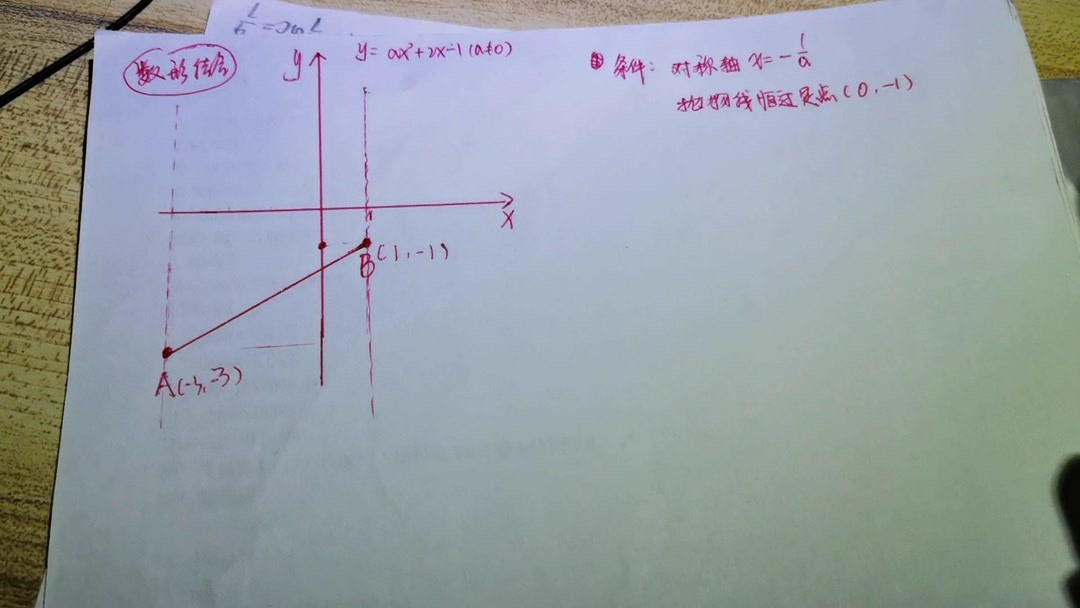 数形结合
y
y = ax²+2x-1 (a≠0)
① 条件: 对称轴 x = -1/a
抛物线恒过定点 (0, -1)
x
1
B (1, -1)
A (-3, -3)